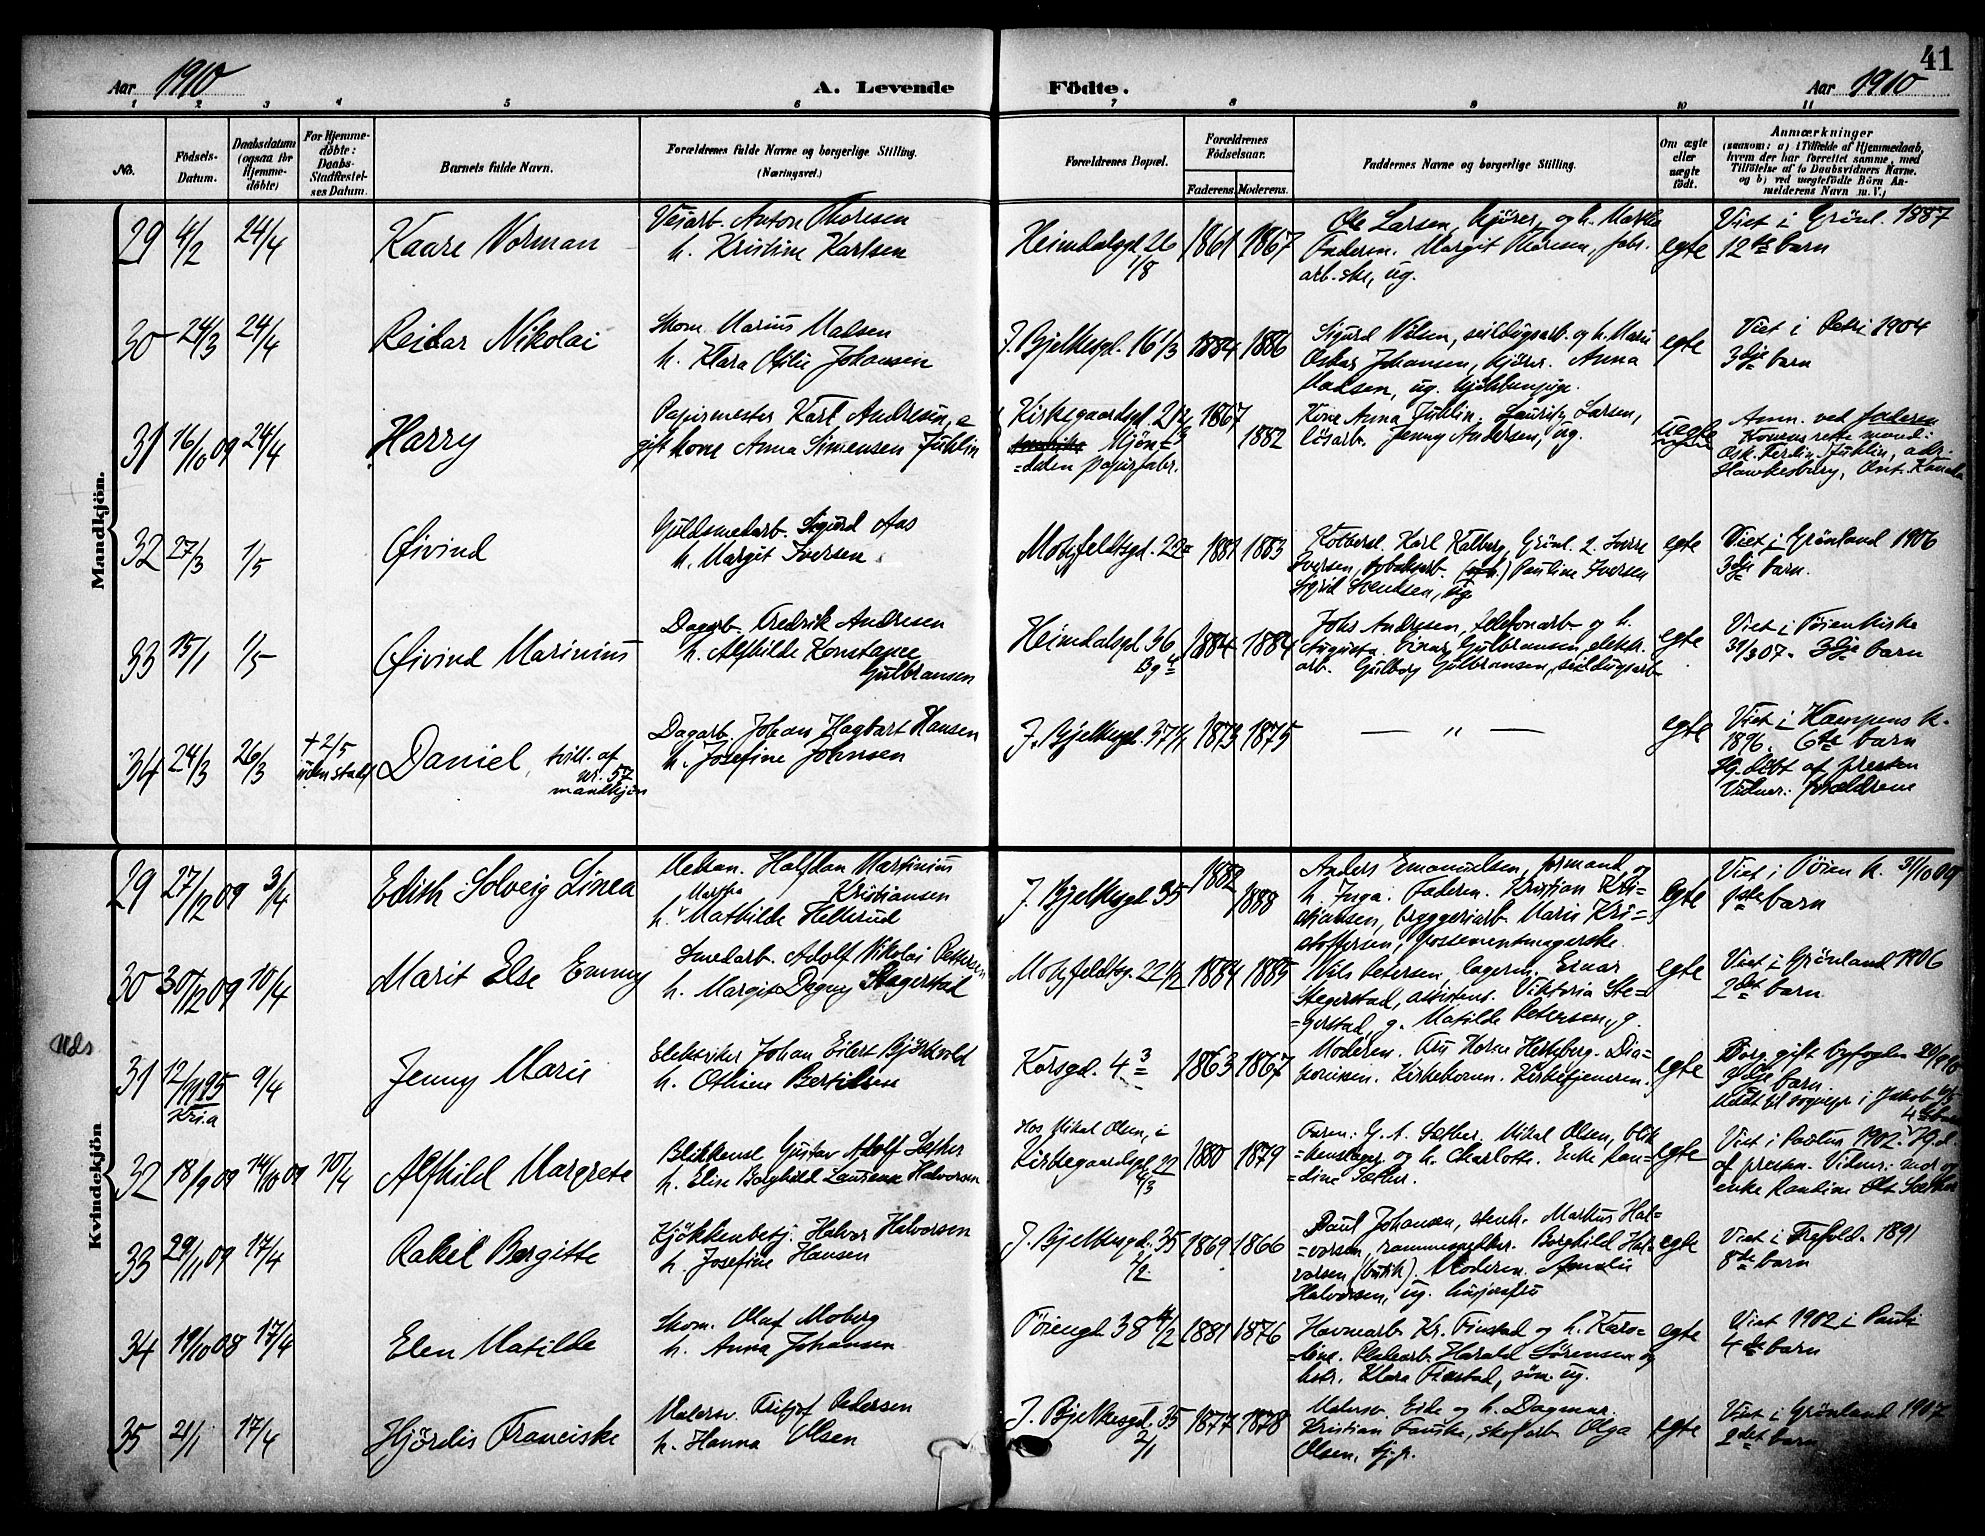 41
Aar 1910
A. Levende
Födte.
Aar 1910
1 2 3 4 5 6 7 8 9 10 11
No.
Födsels-
Datum.
Daabsdatum
(ogsaa for
Hjemme-
döbte)
For Hjemme-
döbte:
Daabs-
Stadfæstel-
ses Datum.
Barnets fulde Navn.
Forældrenes fulde Navne og borgerlige Stilling.
(Næringsvei.)
Forældrenes Bopæl.
Forældrenes
Födselsaar.
Faderens. Moderens.
Faddernes Navne og borgerlige Stilling.
Om ægte
eller
uægte
födt.
Anmærkninger
(saasom: a) i Tilfælde af Hjemmedaab,
hvem der har forrettet samme, med
Tilföielse af to Daabsvidners Navne.
og b) ved uægtefödte Börn An-
melderens Navn m. V.)
Mandkjön.
29 4/2 24/4 Kaare Norman
Veiarb. Anton Thoresen
h. Kristine Karlsen
Heimdalsgd. 26
1/8
1861 1867
Ole Larsen, kjører, og h. Marthe
Faderen. Margit Thoresen, fabr.
arb.ske, ug.
egte
Viet i Grönl. 1887
12te barn
30 24/3 24/4 Reidar Nikolai
Skom. Marius Madsen
h. Klara Otilie Johansen
J. Bjelkesgd. 16 1/3 1884 1886
Sigurd Nilsen, seildugsarb. og h. Marie
Oskar Johansen, kjörer. Anna
Madsen, ug. kjökkenpige.
egte
Viet i Petri 1904
3dje barn
31 16/10 09 24/4 Harry
Papirmester Karl Andresen, e
gift kone Anna Simensen Juhlin
Kirkegaardsgd.
Mjön-
=dalen papirfabr.
1867
1882
Kone Anna Juhlin. Lauritz Larsen,
lösarb. Jenny Andersen, ug.
uegte
Anm. ved faderen
Konens rette mand:
Osk. Ferdin. Juhlin, adr.
Hawkesbury, Ont. Kanada
32 27/3 1/5 Øivind
Guldsmedarb. Sigurd Aas
h. Margit Iversen
Motzfeldtsgd. 1883
Karl Kalberg, Grönl. 2. Sverre
Iversen, Pauline Iversen
Sigrid Svendsen, ug
egte
Viet i Grønland 1906
3dje barn.
33 15/1 1/5 Øivind Marinius
Dagarb. Fredrik Andresen
h. Alfhilde Konstanse
Gulbransen
Heimdalsgd. 36
1884 1884
Johs Andresen, telefonarb og h.
Augusta. Einar Gulbransen, elektr.
arb. Gulborg Gulbransen, seildugsarb
egte
Viet i Töienkirke
31/3 07. 3dje barn
34 24/3 26/3
+ 2/5
uden stadf
Daniel, tvill. af
nr. 57
mandkjön
Dagarb. Johan Hagbart Hansen
h. Josefine Johnsen
J. Bjelkesgd. 37 1873 1875
— „ —
egte
Viet i Kampens k.
1896. 6te barn
Hj.döbt af presten
Vidner: forældrene
Kvindekjön
29 27/12 09 3/4 Edith Solveig Linea
Mekan. Halfdan Martinius
Kristiansen
h. Martha Mathilde Hellerud
J. Bjelkesgd 35
1882
1888
Anders Emanuelsen, formand og
h. Inga. Faderen. Kristian Kris-
tiansen, bryggeriarb. Marie Kri=
stoffersen, possementmagerske.
egte
Viet i Töien k. 31/10 09
1ste barn
30 30/12 09 10/4 Marit Else Emmy
Smedarb. Adolf Nikolai Pettersen
h. Margit Dagny Stegerstad
Motzfeldtsg. 22 1/2 1884 1885
Nils Petersen, lagerm. Einar
Stegerstad, assistent. Viktoria Ste=
=gerstad, g. Matilde Petersen, g.
egte
Viet i Grønland 1906
2det barn
Uds
31 12/11 1895
Kria
9/4 Jenny Marie
Elektriker Johan Eilert Björkvold
h. Othine Bertilsen
Korsgd. 4 3 1863 1867
Moderen. Fru Horne Hertzberg. Dia=
konissen. Kirkekonen. Kirketjeneren.
egte
Borg. gift byfogden
3dje barn.
32 18/9 09 14/10 09 10/4 Alfhild Margrete
Blikkensl. Gustav Adolf Sæther
h. Elise Borghild Laurenze Halvorsen
Hos Mikal Olsen, i
Kirkegaardsgd. 22
4/3
1880 1879
Faren: G. A. Sæther. Mikal Olsen, blik
kenslager og h. Charlotte. Enke Ran=
=dine Sæther.
egte
Viet i Paulus 1902. Hj.d.
af presten. Vidner: mor og
enke Randine Sæther
33 29/11 09 17/4 Rakel Bergitte
Kjökkenbetj. Halvor Halvorsen
h. Josefine Hansen
J. Bjelkesgd. 35
2/2
1869 1866
Paul Johansen, stenh. Markus Hal=
=vorsen, rammesnekker. Borghild Hal=
vorsen (butik). Moderen. Amalie
Halvorsen, ug. husjomfru
egte
Viet i Trefold. 1891
8de barn
34 19/10 08 17/4 Elen Matilde
Skom. Olaf Moberg
h. Anna Johansen
Töiengd 38 4/2 1881 1876
Havnearb Kr. Finstad og h. Karo=
=line. Harald Sörensen og
hstr. Klara Finstad, söm. ug.
egte
Viet 1902 i Pauli
4de barn
35 2/1 17/4 Hjördis Franciske
Malersv. Fritjof Pedersen
h. Hanna Olsen
J. Bjelkesgd. 35
2/1
1877 1878
Malersv. Eide og h. Dagmar.
Kristian Fauske, skofarb Olga
Olsen, tj.p.
egte
Viet i Grønland 1907
2det barn